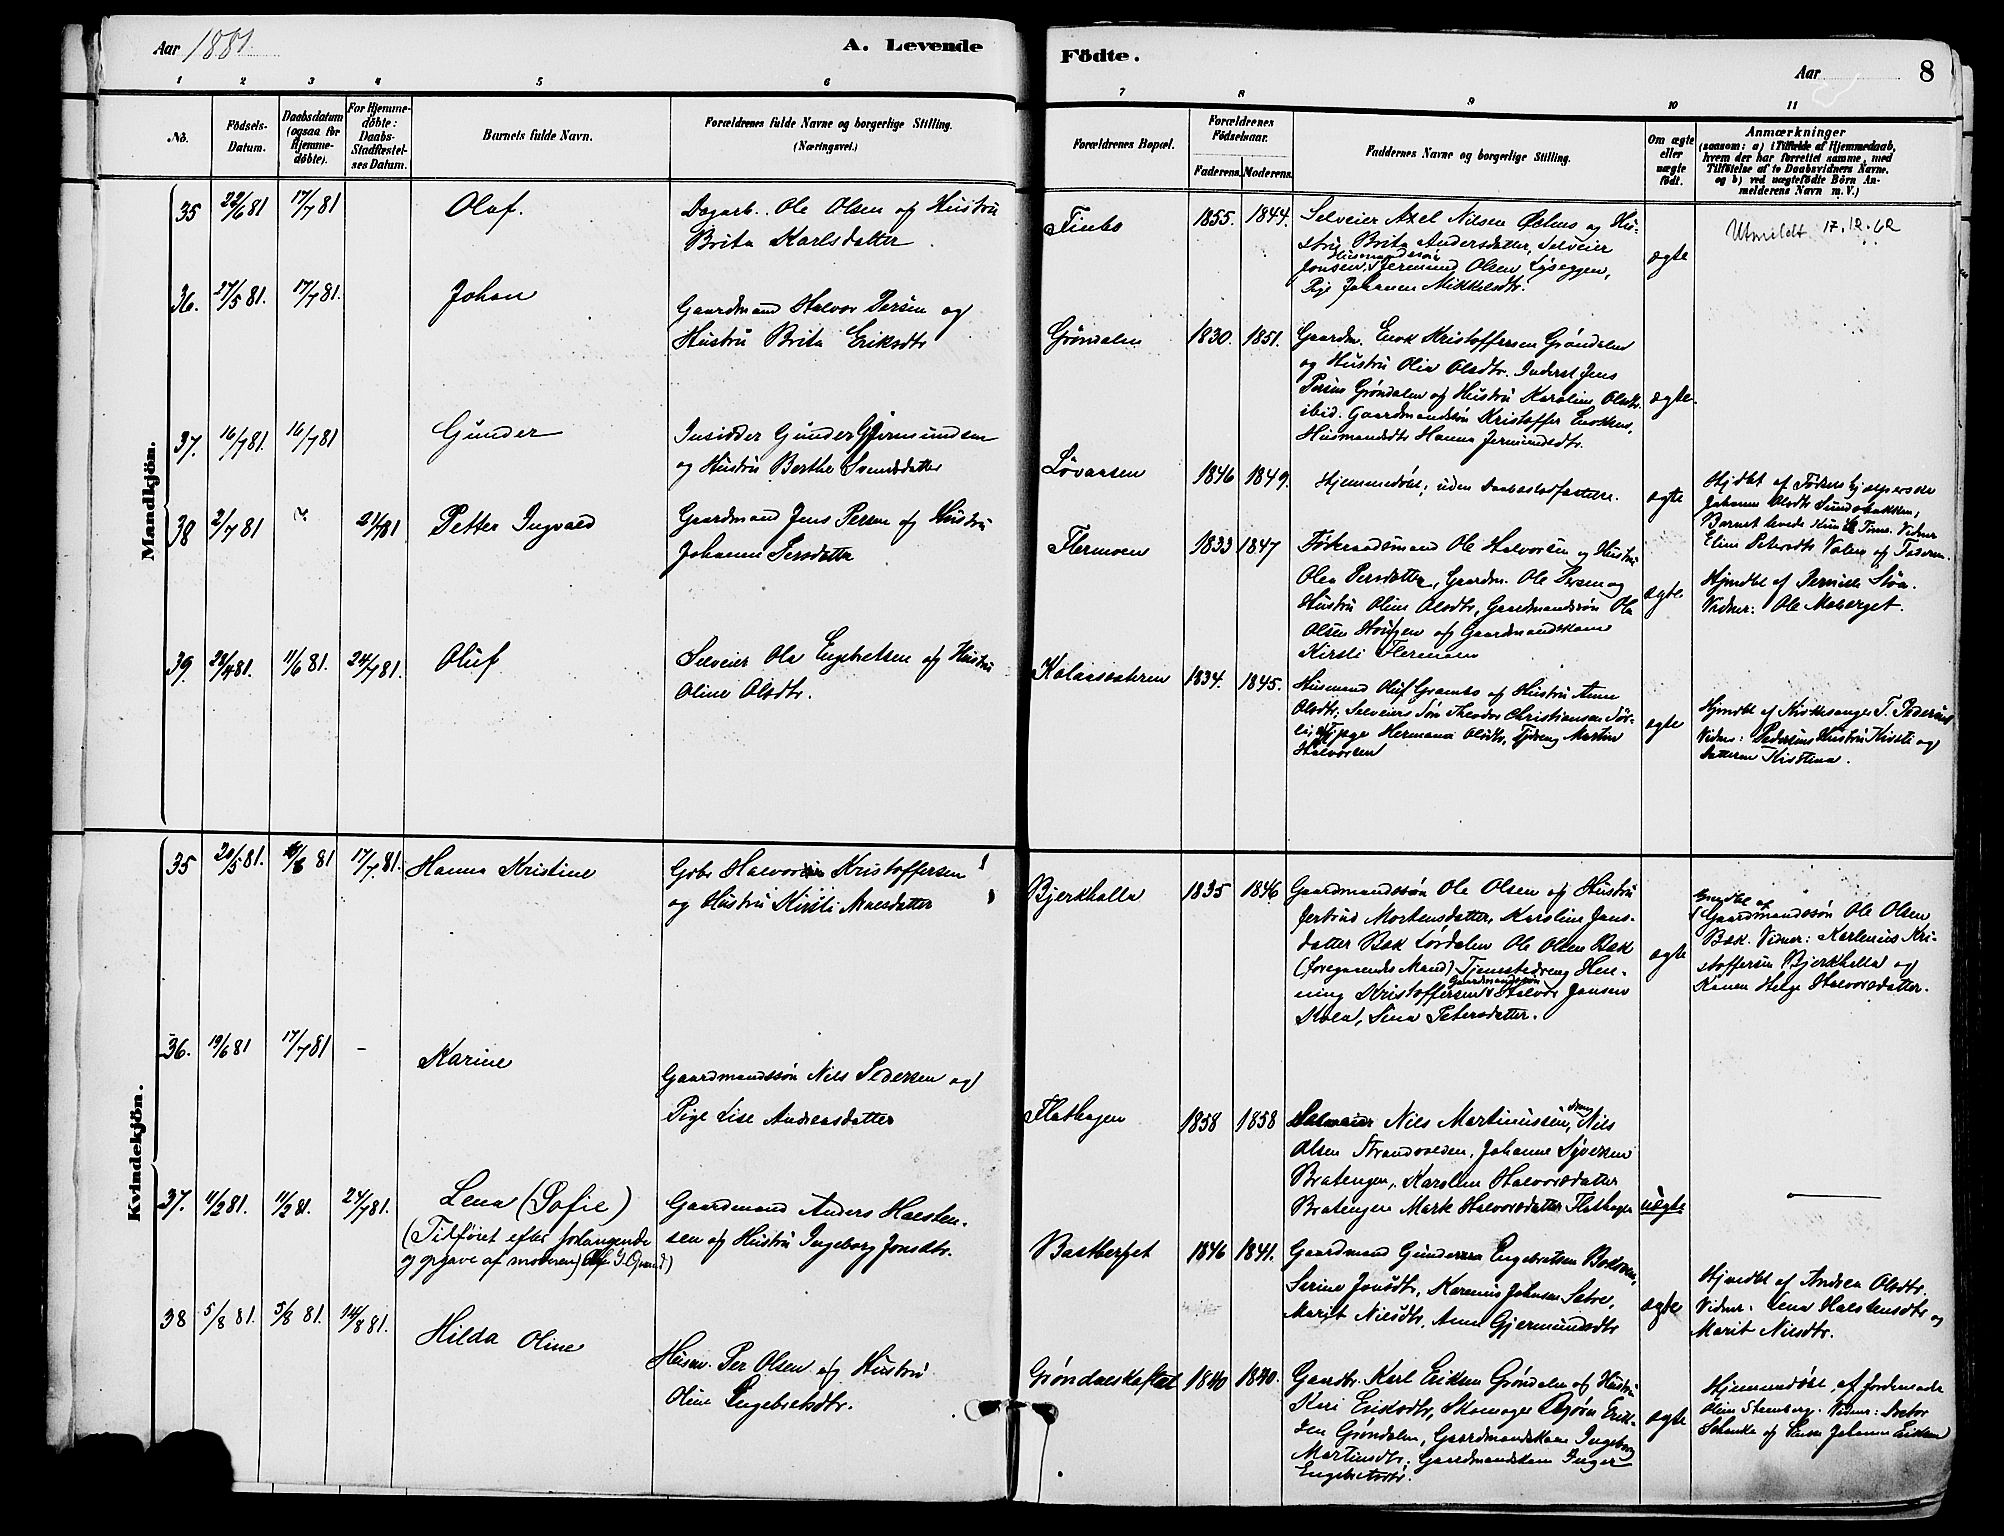 Aar 1881.
A. Levende
Födte.
Aar
8
1 2 3 4 5 6 7 8 9 10 11
No.
Födsels-Datum.
Daabsdatum (ogsaa for Hjemme-döbte).
For Hjemme-döbte: Daabs-Stadfæstelses Datum.
Barnets fulde Navn.
Forældrenes fulde Navne og borgerlige Stilling.
(Næringsvei.)
Forældrenes Bopæl.
Forældrenes Födselsaar.
Faderens. Moderens.
Faddernes Navne og borgerlige Stilling.
Om ægte eller uægte födt.
Anmærkninger
(saasom: a) i Tilfælde af Hjemmedaab,
hvem der har forrettet samme, med
Tilföielse af to Daabsvidners Navne.
og b) ved uægtefödte Börn An-
melderens Navn m. V.)
Mandkjön.
35 22/6 81 17/7 81 Olaf.
Dagarb. Ole Olsen og Hustru
Brita Karlsdatter
Finbo 1855. 1844.
Selveier Axel Nilsen og Hu-
stru Brita Andersdatter, Selveier
Husmandssøn
Jonsen, Jermund Olsen Lyseggen,
Pige Johanne Mikkelsdtr.
ægte
Utmeldt 17.12.62
36. 27/5 81 17/7 81. Johan
Gaardmand Halvor Persen og
Hustru Brita Eriksdtr
Grøndalen 1830. 1851.
Gaardm. Enok Kristoffersen Grøndalen
og Hustru Olea Olsdtr. Inderst Jens
Persen Grøndalen og Hustru Karoline Olsdtr.
ibid. Gaardmandssøn Kristoffer Enoksen,
Husmandsdtr Hanna Jermundsdtr.
ægte.
37. 16/7 81. 16/7 81 Gunder
Insidder Gunder Gjermundsen
og Hustru Berthe Svendsdatter
Løvaasen 1846 1849.
Hjemmedøbt; uden Daabsstadfæstelse.
ægte
Hjdbt af Fødselshjælperske
Johanne Olsdtr Sundsbakken,
Barnet levede kun Time. Vidner
Eline Petersdtr Valen og Faderen.
38 2/7 81 21/7 81 Petter Ingvald
Gaardmand Jens Persen og Hustru
Johanne Persdatter
Flermoen 1833 1847
Føderaadsmand Ole Halvorsen og Hustru
Olea Persdatter, Gaardm. Ole Persen og
Hustru Oline Olsdtr, Gaardmandssøn Ole
Olsen og Gaardmandskone
Kirsti Flermoen
ægte
Hjmdbt af Pernille Støa.
Vidner: Ole Moberget.
39. 11/6 81. 24/7 81. Oluf
Selveier Ole Engebretsen og Hustru
Oline Olsdtr.
Kolaassæteren 1834. 1845.
Husmand Oluf Grambo og Hustru Anne
Olsdtr, Selveiers Søn Theodor Christiansen Sør-
li, Pige Hermana Olsdtr, Tjdreng Martin
Halvorsen
ægte
Hjmdbt af Kirkesanger T. Pedersen
Vidner: Pedersens Hustru Kirsti og
Datteren Kristina.
Kvindekjön.
35 20/5 81. 6/6 81 17/7 81. Hanna Kristine
Gbr. Halvor Kristoffersen
og Hustru Kirsti Malesdatter
Bjerkhalla 1835 1846
Gaardmandssøn Ole Olsen og Hustru
Jertrud Mortensdatter, Karoline Jans-
datter Bæk Lørdalen Ole Olsen Bæk
(foregaaendes Mand) Tjenestedreng Hen-
ning Kristoffersen, Gaardmandssøn Halvor Jansen
Kolos, Sina Petersdatter.
ægte
Hjmdbt af
Gaardmandssøn Ole Olsen
Bæk. Vidner: Karlenius Kri-
stoffersen Bjerkhalla og
Konen Helge Halvorsdatter.
36. 19/6 81 17/7 81 - Karine
Gaardmandssøn Nils Pedersen og
Pige Lise Andreasdatter
Flathagen 1858 1858
Selveier Nils Martinussen, dreng Nils
Olsen Strandvolden, Johanne Syversen
Bratengen, Karoline Halvorsdatter
Bratengen Marte Halvorsdatter Flathagen
uægte
37. 11/2 81. 11/2 81. 24/7 81. Lena (Sofie)
(Tilføiet efter forlangende
og opgave af moderen)
Gaardmand Anders Halsten-
sen og Hustru Ingeborg Jonsdtr.
Bastberget 1846 1841.
Gaardmand Gunder Engebretsen
Serine Jonsdtr, Karenius Johnsen Sætre,
Marit Nilsdtr, Anne Gjermundsdtr
ægte
Hjmdbt af Andrea Olsdtr.
Vidner: Lena Halstensdtr og
Marit Nilsdtr.
38 5/8 81. 5/8 81. 14/8 81. Hilda Oline
Husm. Per Olsen og Hustru
Oline Engebretsdtr.
Grøndalskaftet 1840 1840.
Gaardbr. Karl Eriksen Grøndalen og Hustru
Kari Eriksdtr, Skomager Bjørn Erik-
sen Grøndalen, Gaardmandskone Ingeborg
Martinsdtr, Gaardmandskone Inger
Engebretsdtr.
ægte
Hjemmedøbt af Jordemoder
Oline Stenberg. Vidner: Doctor
Schanke og Enke Johanne Eriksen